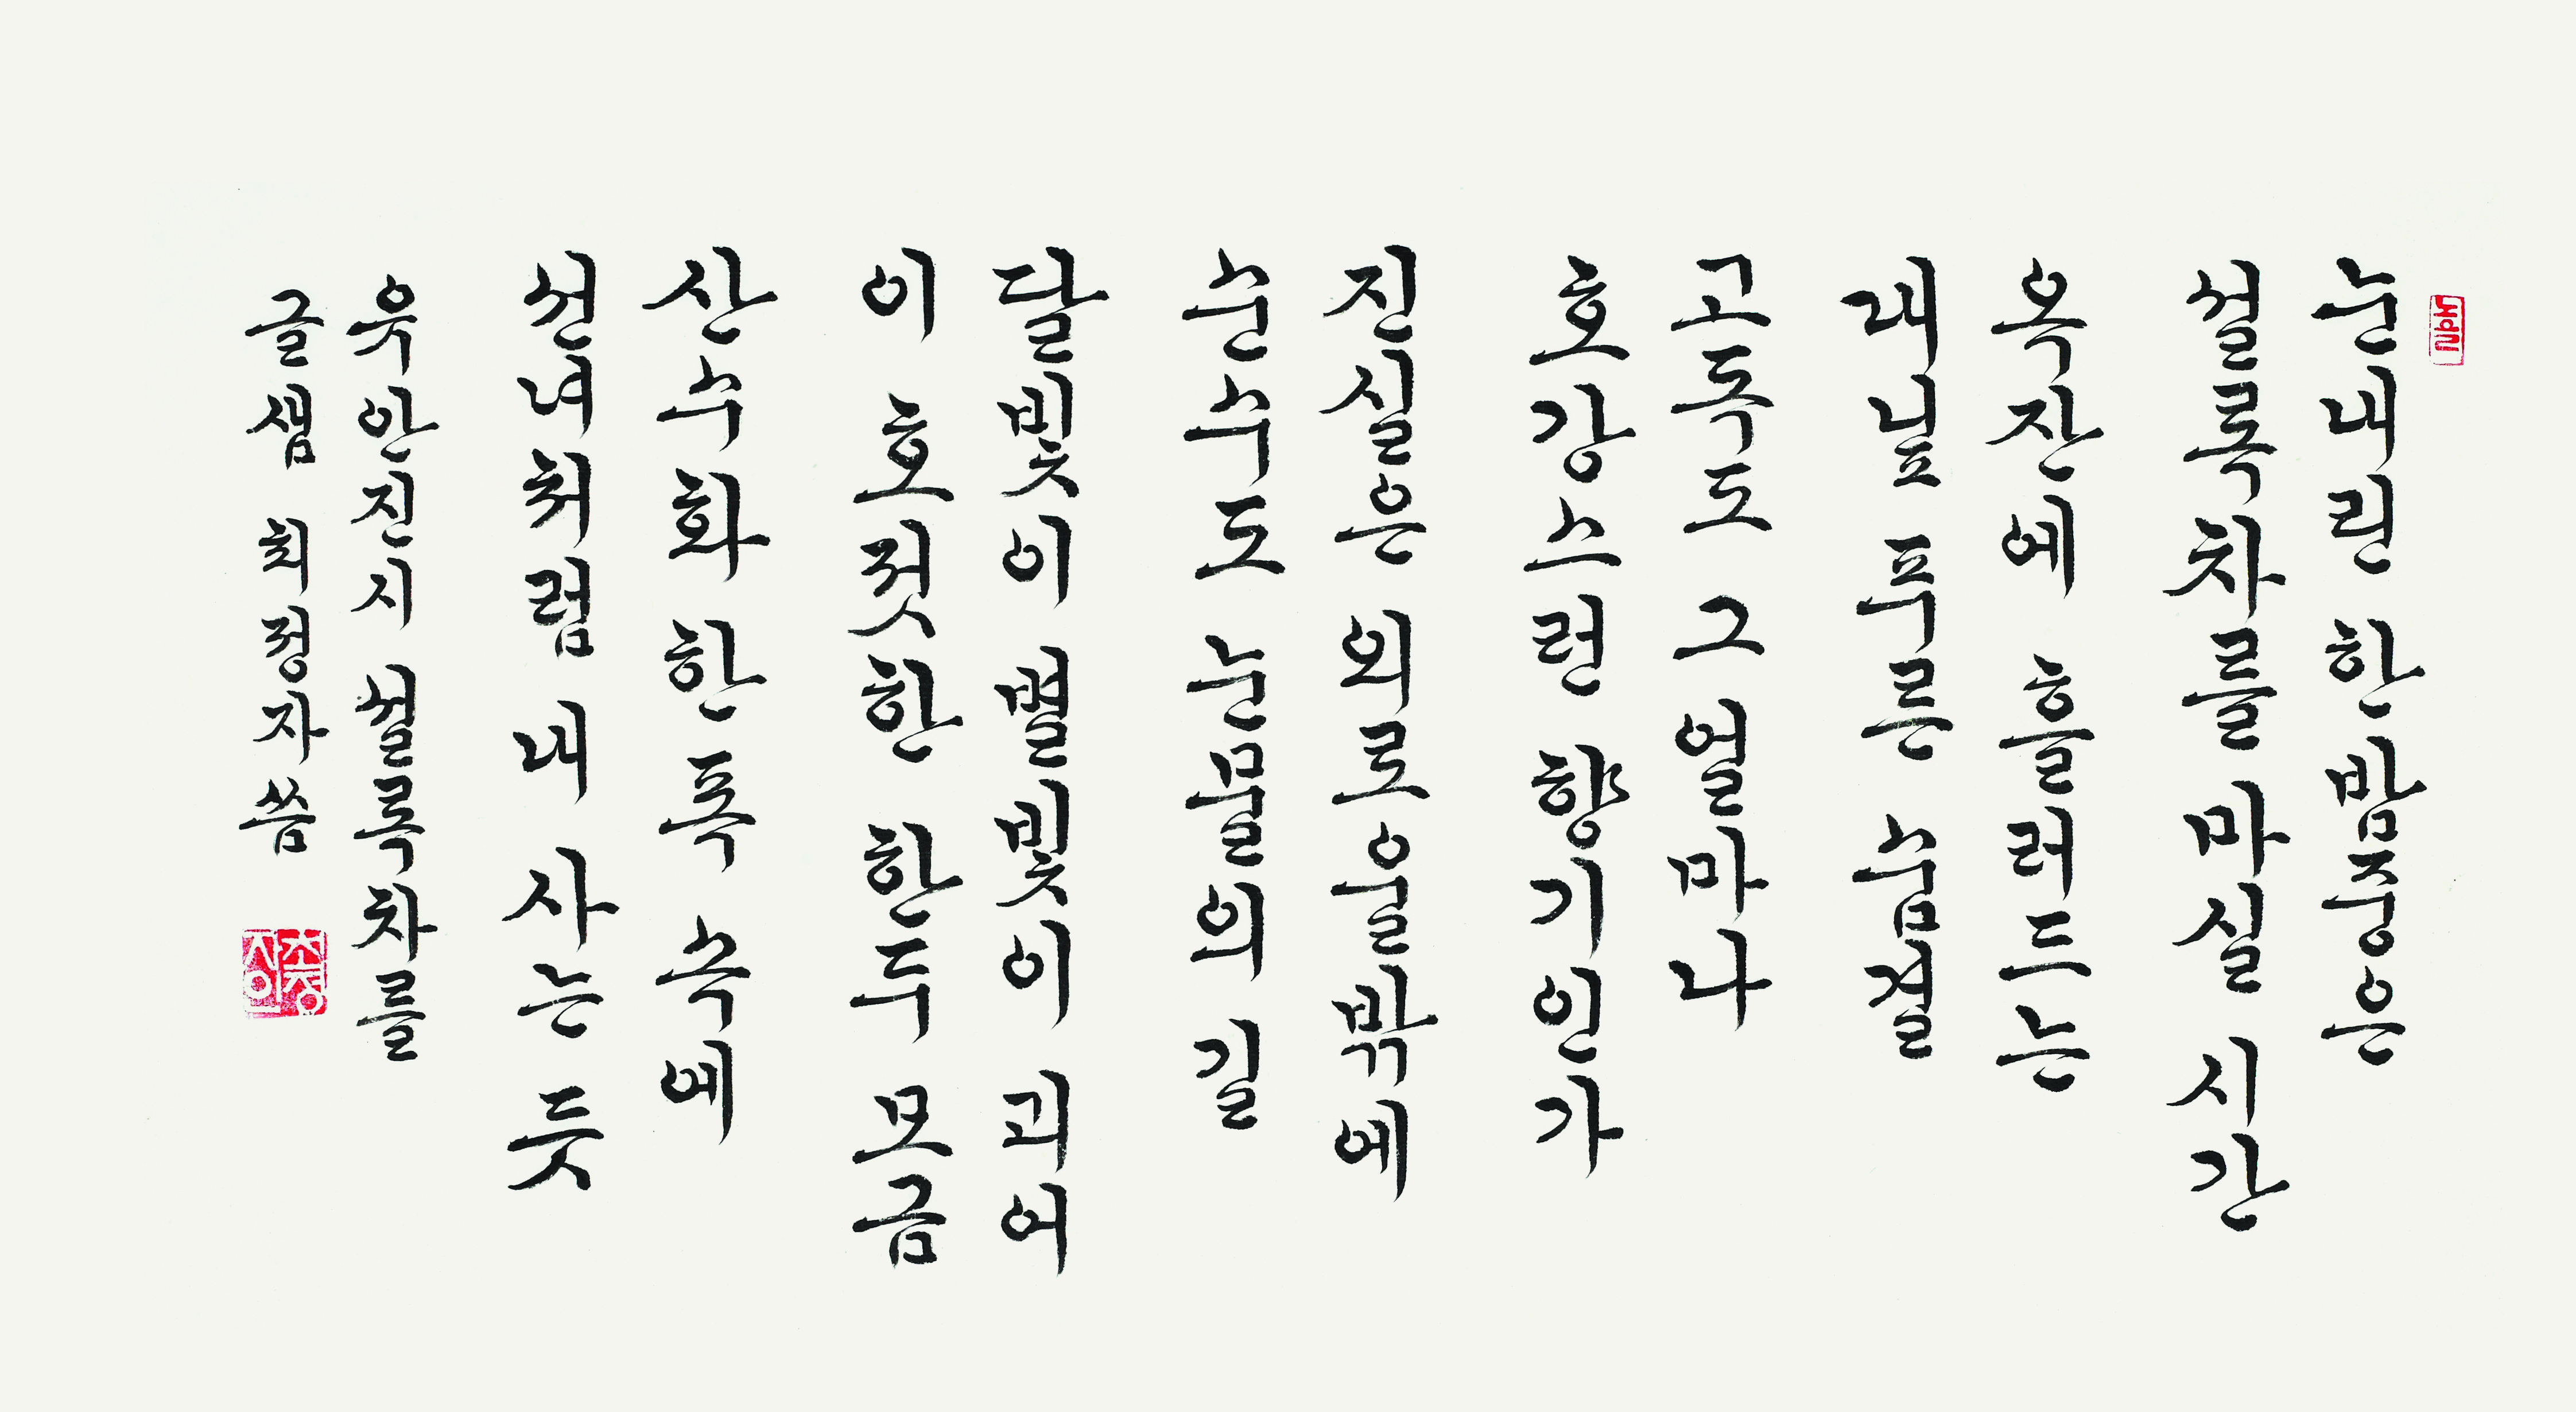 눈내린 한밤중은
설록차를 마실 시간
옥잔에 흘러드는
대닢 푸른 숨결
고독도 그 얼마나
호강스런 향기인가
진실은 외로울밖에
순수도 눈물의 길
달빛이 별빛이 괴어
이 호젓한 한두 모금
산수화 한폭 속에
선녀처럼 내 사는 듯
유안진시 설록차를
글샘 최정자 씀